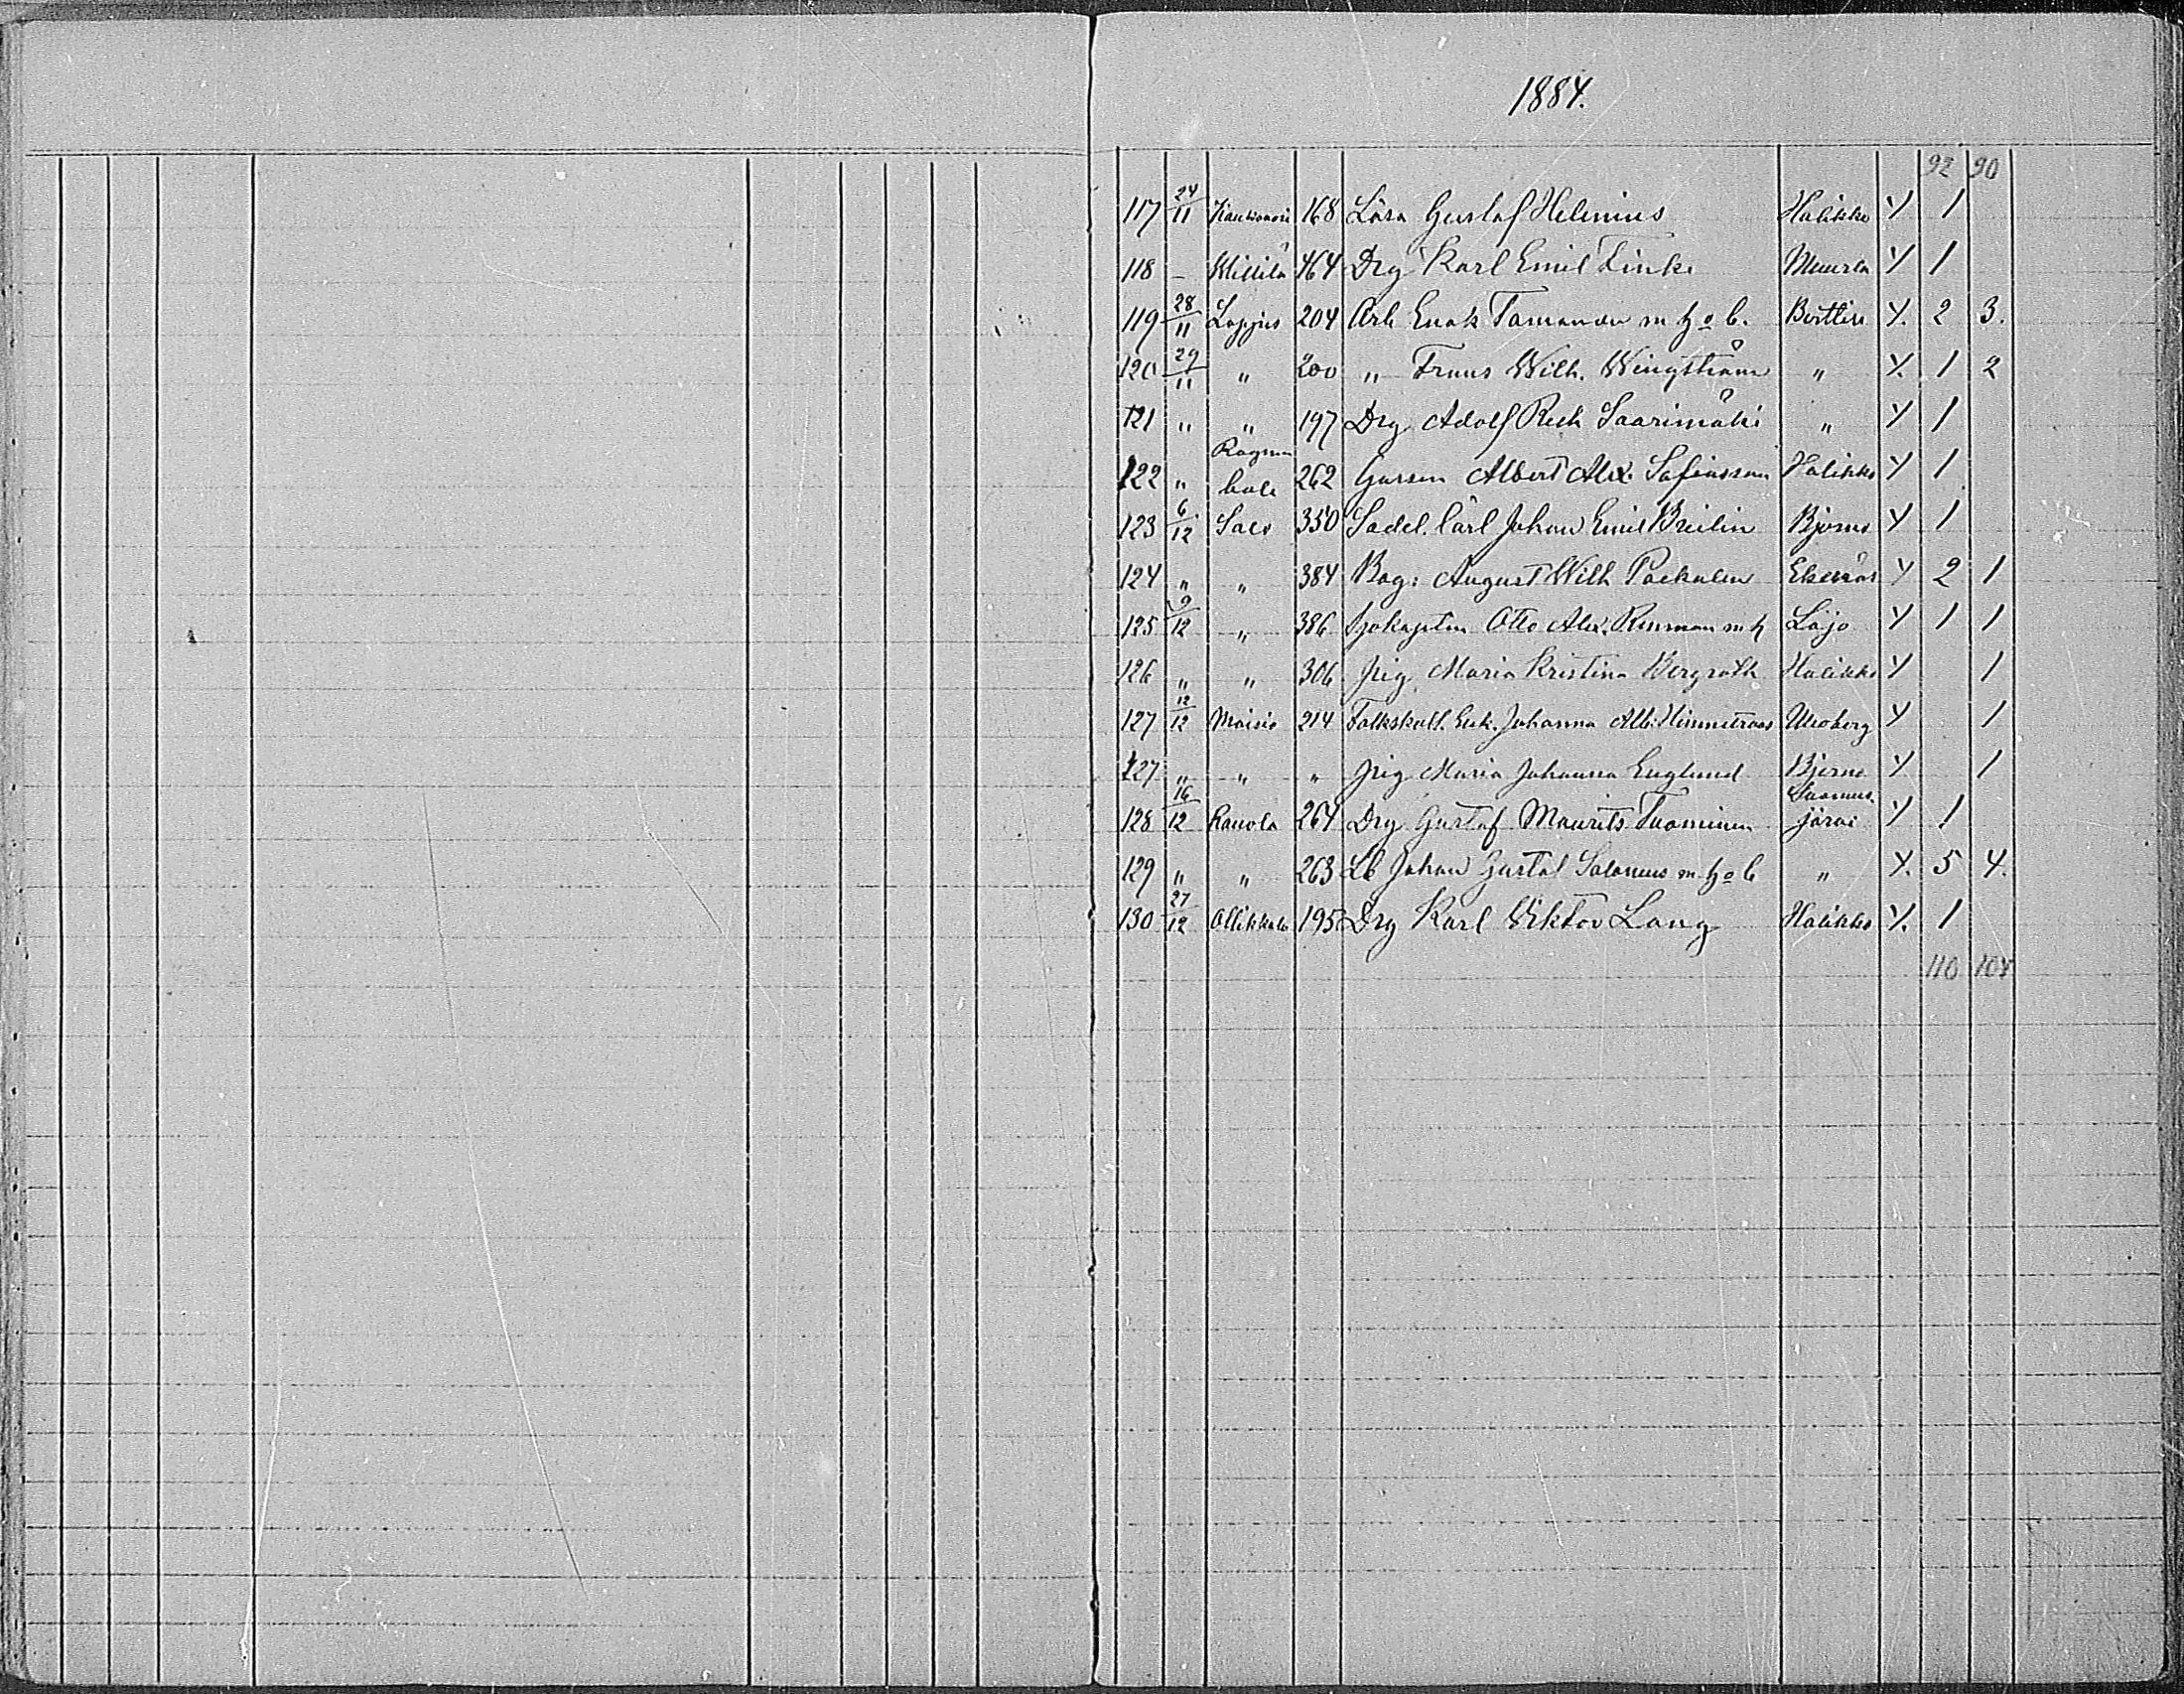 1884.
92 90
117 24/11 168 Lärn Gustaf Helenius Halikko Y 1
118 - Willilä 464 Drg Karl Emil Finke Muurla Y 1
119 28/11 Loppis 204 Arb Enok Tamanen m h o b. Y. 2 3.
120 29/11 " 200 " Frans Wilh. Wingström " Y. 1 2
121 " " 197 Drg Adolf Saarimäki " Y 1
122 " 262 Albert Alex. Halikko Y 1
123 6/12 Salo 350 Sadel. lärl Johan Emil Breilin Bjerno Y 1
124 " " 384 Bag: August Wilh Packalen Ekenäs Y 2 1
125 9/12 " 386 Sjökapten Otto Alex. m h Lojo Y 1 1
126 " " 306 Pig Maria Kristina Bergroth Halikko Y 1
127 12/12 214 Johanna Uleoborg Y 1
127 " " " Pig Maria Johanna Englund Bjerno Y 1
128 16/12 Ranola 264 Drg Gustaf Maurits Tuominen Suomusjärvi Y 1
129 " " 263 Lb Johan Gustaf Salonius m h o b " Y. 5 4.
130 27/12 Ollikkala 195 Drg Karl Wiktor Lang Halikko Y. 1
110 104